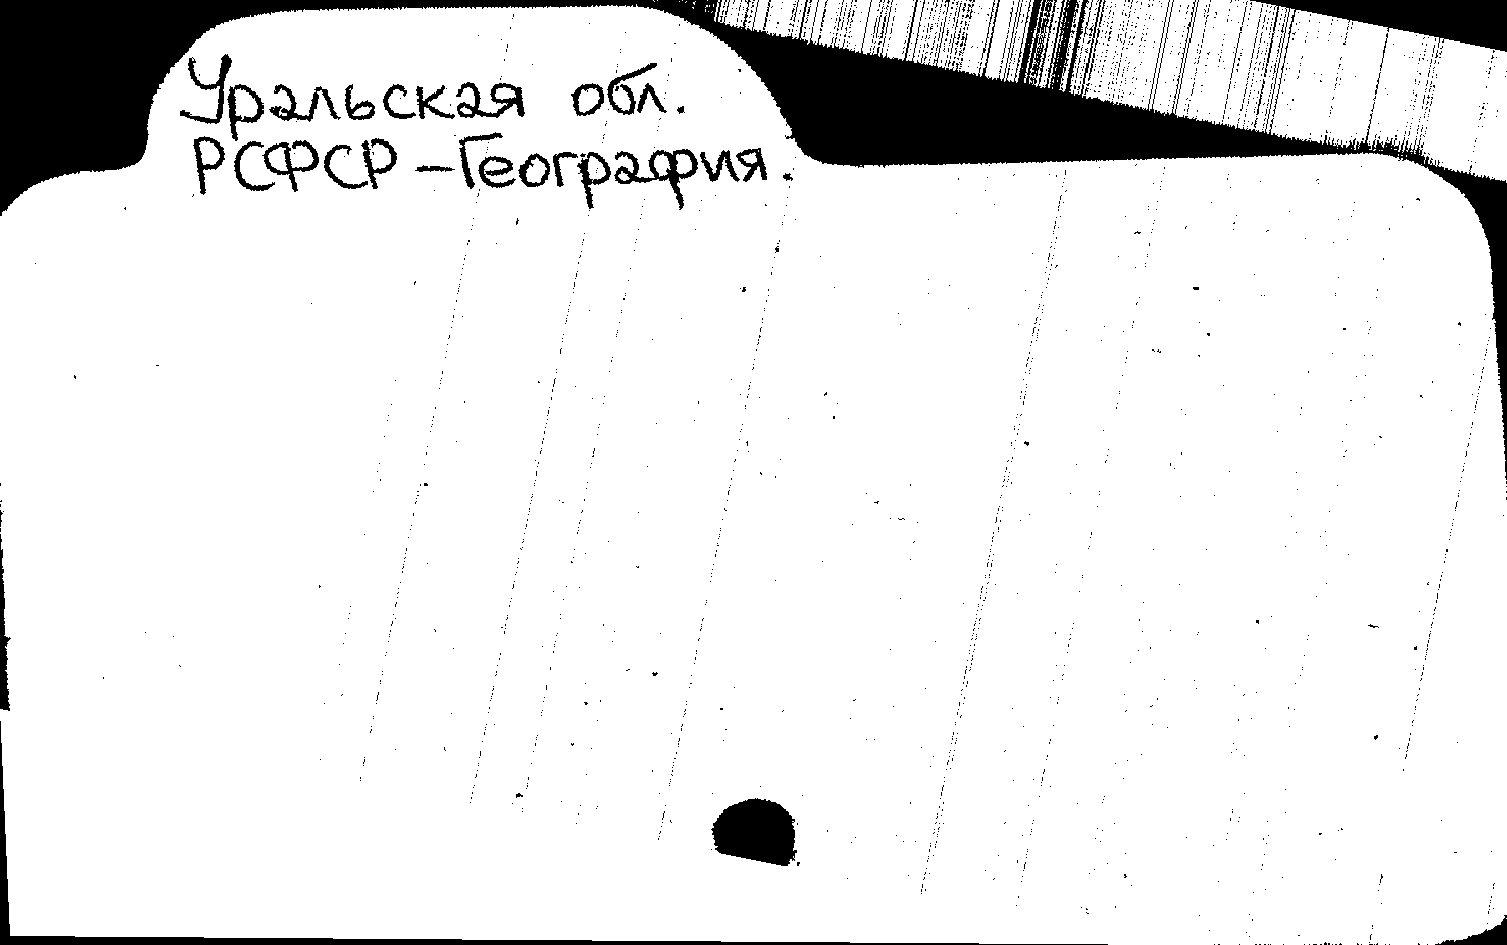 Уральская обл.
РСФСР – География.